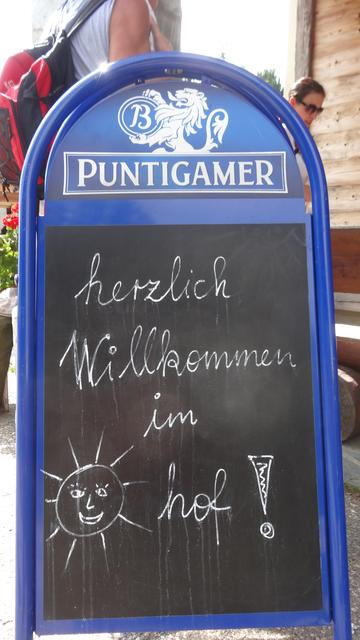 B
PUNTIGAMER
herzlich
Willkommen
im
hof !